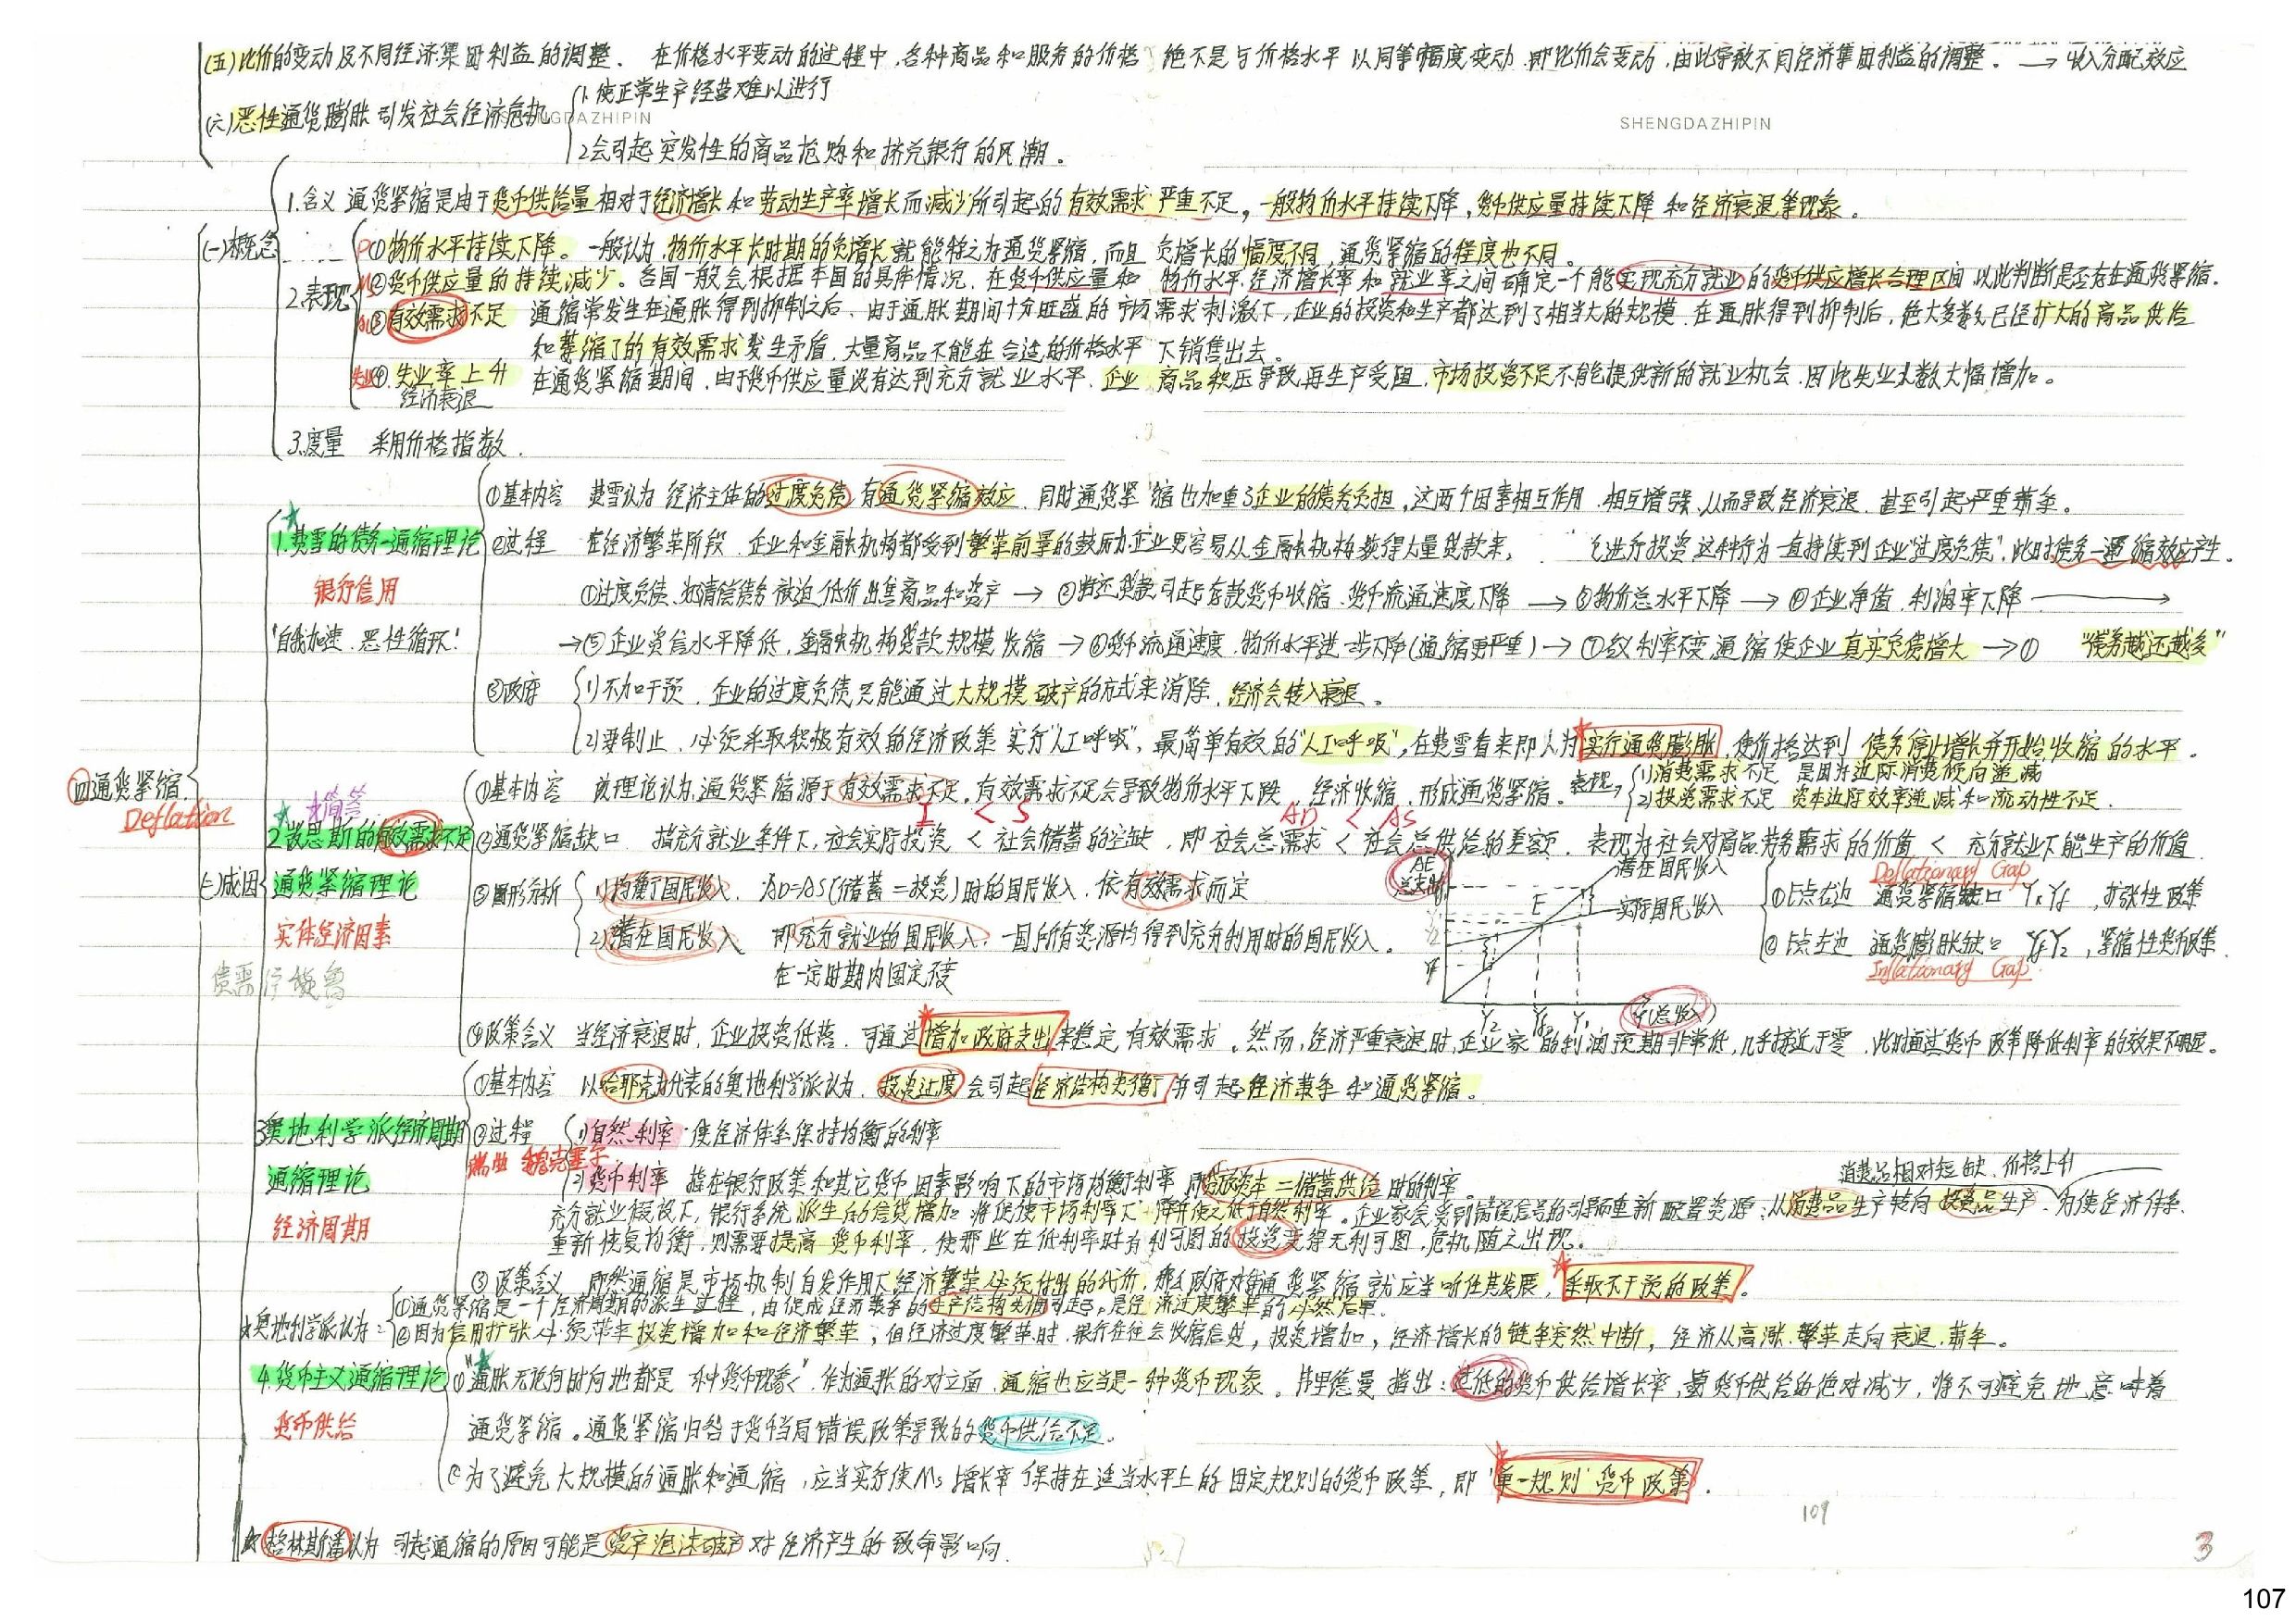 (五)比价的变动及不同经济集团利益的调整. 在价格水平变动的过程中,各种商品和服务的价格绝不是与价格水平以同等幅度变动,即比价会变动,由此导致不同经济集团利益的调整。→收入分配效应
(六)恶性通货膨胀引发社会经济危机
1.使正常生产经营难以进行
2.会引起突发性的商品抢购和挤兑银行的风潮。
SHENGDAZHIPIN
(一)概念
1.含义 通货紧缩是由于货币供给量相对于经济增长和劳动生产率增长而减少所引起的有效需求严重不足,一般物价水平持续下降,货币供应量持续下降和经济衰退等现象。
2.表现
P①物价水平持续下降。一般认为,物价水平长时期的负增长就能称之为通货紧缩,而且负增长的幅度不同,通货紧缩的程度也不同。
Ms②货币供应量的持续减少。各国一般会根据本国的具体情况,在货币供应量和物价水平.经济增长率和就业率之间确定一个能实现充分就业的货币供应增长合理区间以此判断是否存在通货紧缩.
③有效需求不足 通缩常发生在通胀得到抑制之后.由于通胀期间十分旺盛的市场需求刺激下,企业的投资和生产都达到了相当大的规模.在通胀得到抑制后,绝大多数已经扩大的商品供给
和萎缩了的有效需求发生矛盾.大量商品不能在合适的价格水平下销售出去。
失业④.失业率上升 在通货紧缩期间.由于货币供应量没有达到充分就业水平.企业商品积压导致再生产受阻,市场投资不足不能提供新的就业机会.因此失业人数大幅增加。
经济衰退
3.度量 采用价格指数.
①基本内容 费雪认为经济主体的过度负债有通货紧缩效应.同时通货紧缩也加重了企业的债务负担,这两个因素相互作用.相互增强.从而导致经济衰退.甚至引起严重萧条。
1.费雪的债务—通缩理论
②过程 在经济繁荣阶段.企业和金融机构都受到繁荣前景的鼓励,企业更容易从金融机构获得大量贷款来,进行投资,这种行为一直持续到企业"过度负债",此时债务—通缩效应产生.
银行信用
①过度负债.为清偿债务被迫低价出售商品和资产→②归还贷款引起存款货币收缩.货币流通速度下降→③物价总水平下降→④企业净值.利润率下降→
"自我加速.恶性循环!
→⑤企业资信水平降低,金融机构贷款规模收缩→⑥货币流通速度.物价水平进一步下降(通缩更严重)→⑦名义利率不变,通缩使企业真实负债增大→① "债务越还越多"
③政府
(1)不加干预.企业的过度负债只能通过大规模破产的方式来消除.经济会转入衰退。
(2)要制止.必须采取积极有效的经济政策实行"人工呼吸",最简单有效的"人工呼吸",在费雪看来即人为实行通货膨胀,使价格达到债务停止增长并开始收缩的水平.
四通货紧缩
Deflation
大简答
①基本内容 该理论认为,通货紧缩源于有效需求不足,有效需求不足会导致物价水平下跌.经济收缩.形成通货紧缩。表现→
(1)消费需求不足 是因为边际消费倾向递减
(2)投资需求不足 资本边际效率递减和流动性不足.
I < S
AD < AS
2.凯恩斯的有效需求不足
②通货紧缩缺口 指充分就业条件下,社会实际投资 < 社会储蓄的空缺,即社会总需求 < 社会总供给的差额.表现为社会对商品劳务需求的价值 < 充分就业下能生产的价值.
(二)成因
通货紧缩理论
③图形分析
(1)均衡国民收入.为AD=AS(储蓄=投资)时的国民收入.依有效需求而定
AE
总支出
E
潜在国民收入
实际国民收入
Deflationary Gap
①E点右边 通货紧缩缺口 Y1Yf,扩张性政策
实体经济因素
(2)潜在国民收入 即充分就业的国民收入.一国所有资源均得到充分利用时的国民收入。
②E点左边 通货膨胀缺口 YfY2,紧缩性货币政策.
Inflationary Gap
在一定时期内固定不变
Y2 Yf Y1 Y(总收入)
④政策含义 当经济衰退时,企业投资低落.可通过增加政府支出来稳定有效需求。然而,经济严重衰退时,企业家的利润预期非常低,几乎接近于零.此时通过货币政策降低利率的效果不明显。
①基本内容 以哈耶克为代表的奥地利学派认为.投资过度会引起经济结构失衡,并引起经济萧条和通货紧缩。
3奥地利学派经济周期
②过程 (1)自然利率 使经济体系保持均衡的利率
瑞典 维克塞尔
通缩理论
(2)货币利率 指在银行政策和其它货币因素影响下的市场均衡利率.即借贷资本=储蓄供给时的利率。
消费品相对短缺.价格上升
充分就业假设下,银行系统派生的信贷增加将促使市场利率下降并使之低于自然利率。企业家会受到错误信号的引导而重新配置资源:从消费品生产转向投资品生产.为使经济体系
经济周期
重新恢复均衡,则需要提高货币利率.使那些在低利率时有利可图的投资变得无利可图.危机随之出现.
③政策含义 既然通缩是市场机制自发作用下经济繁荣必须付出的代价.那么政府对待通货紧缩就应当听任其发展,采取不干预的政策。
奥地利学派认为:
①通货紧缩是一个经济周期的派生过程,由促成经济萧条的生产结构失调引起,是经济过度繁荣的必然后果.
②因为信用扩张必须带来投资增加和经济繁荣;但经济过度繁荣时.银行往往会收缩信贷,投资增加,经济增长的链条突然中断,经济从高涨.繁荣走向衰退.萧条。
4.货币主义通缩理论
①"通胀无论何时何地都是一种货币现象".作为通胀的对立面,通缩也应当是一种货币现象。弗里德曼指出:过低的货币供给增长率,或货币供给的绝对减少,将不可避免地意味着
货币供给
通货紧缩。通货紧缩归咎于货币当局错误政策导致的货币供给不足。
②为了避免大规模的通胀和通缩,应当实行使Ms增长率保持在适当水平上的固定规则的货币政策,即"单一规则"货币政策.
109
格林斯潘认为 引起通缩的原因可能是资产泡沫破产对经济产生的致命影响.
3
107